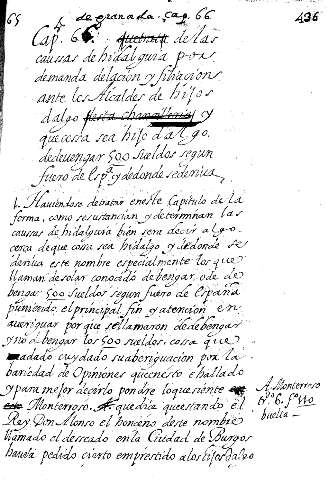 65 de granada Cap. 66. 436
Cap. 66. que trata de las
caussas de hidalguia por
demanda delacion y filiacion
ante los Alcaldes de hijos
dalgo y
que cossa sea hijo dalgo
de devengar 500 sueldos segun
fuero de Esp.ª y de donde se deriva
1. Haviendose de tratar en este Capitulo de la
forma, como se sustancian y determinan las
caussas de hidalguia bien sera decir algo
cerca de que cosa sea hidalgo, y de donde se
deriva este nombre especialmente los que
llaman de solar conocido de bengar, o de de
bengar 500 sueldos segun fuero de España
puniendo el principal fin y atencion en
averiguar por que se llamaron de debengar
y no de bengar los 500 sueldos, cossa que
a dado cuydado su aberiguacion por la
bariedad de Opiniones que en esto e hallado
y para mejor decirlo pondre lo que siente
Monterroso. que diçe que estando el
Rey Don Alonso el honceno deste nombre
llamado el desseado en la Ciudad de Burgos
havia pedido cierto emprestido a los hijos dalgo
A. Monterroso
buelta